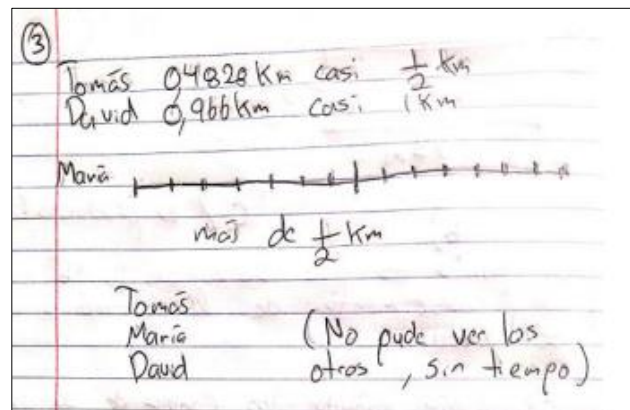 3
Tomás 0,4828 Km casi 1/2 Km
David 0,966 Km casi 1 Km
María
más de 1/2 Km
Tomás
María (No pude ver los
David otros, sin tiempo)